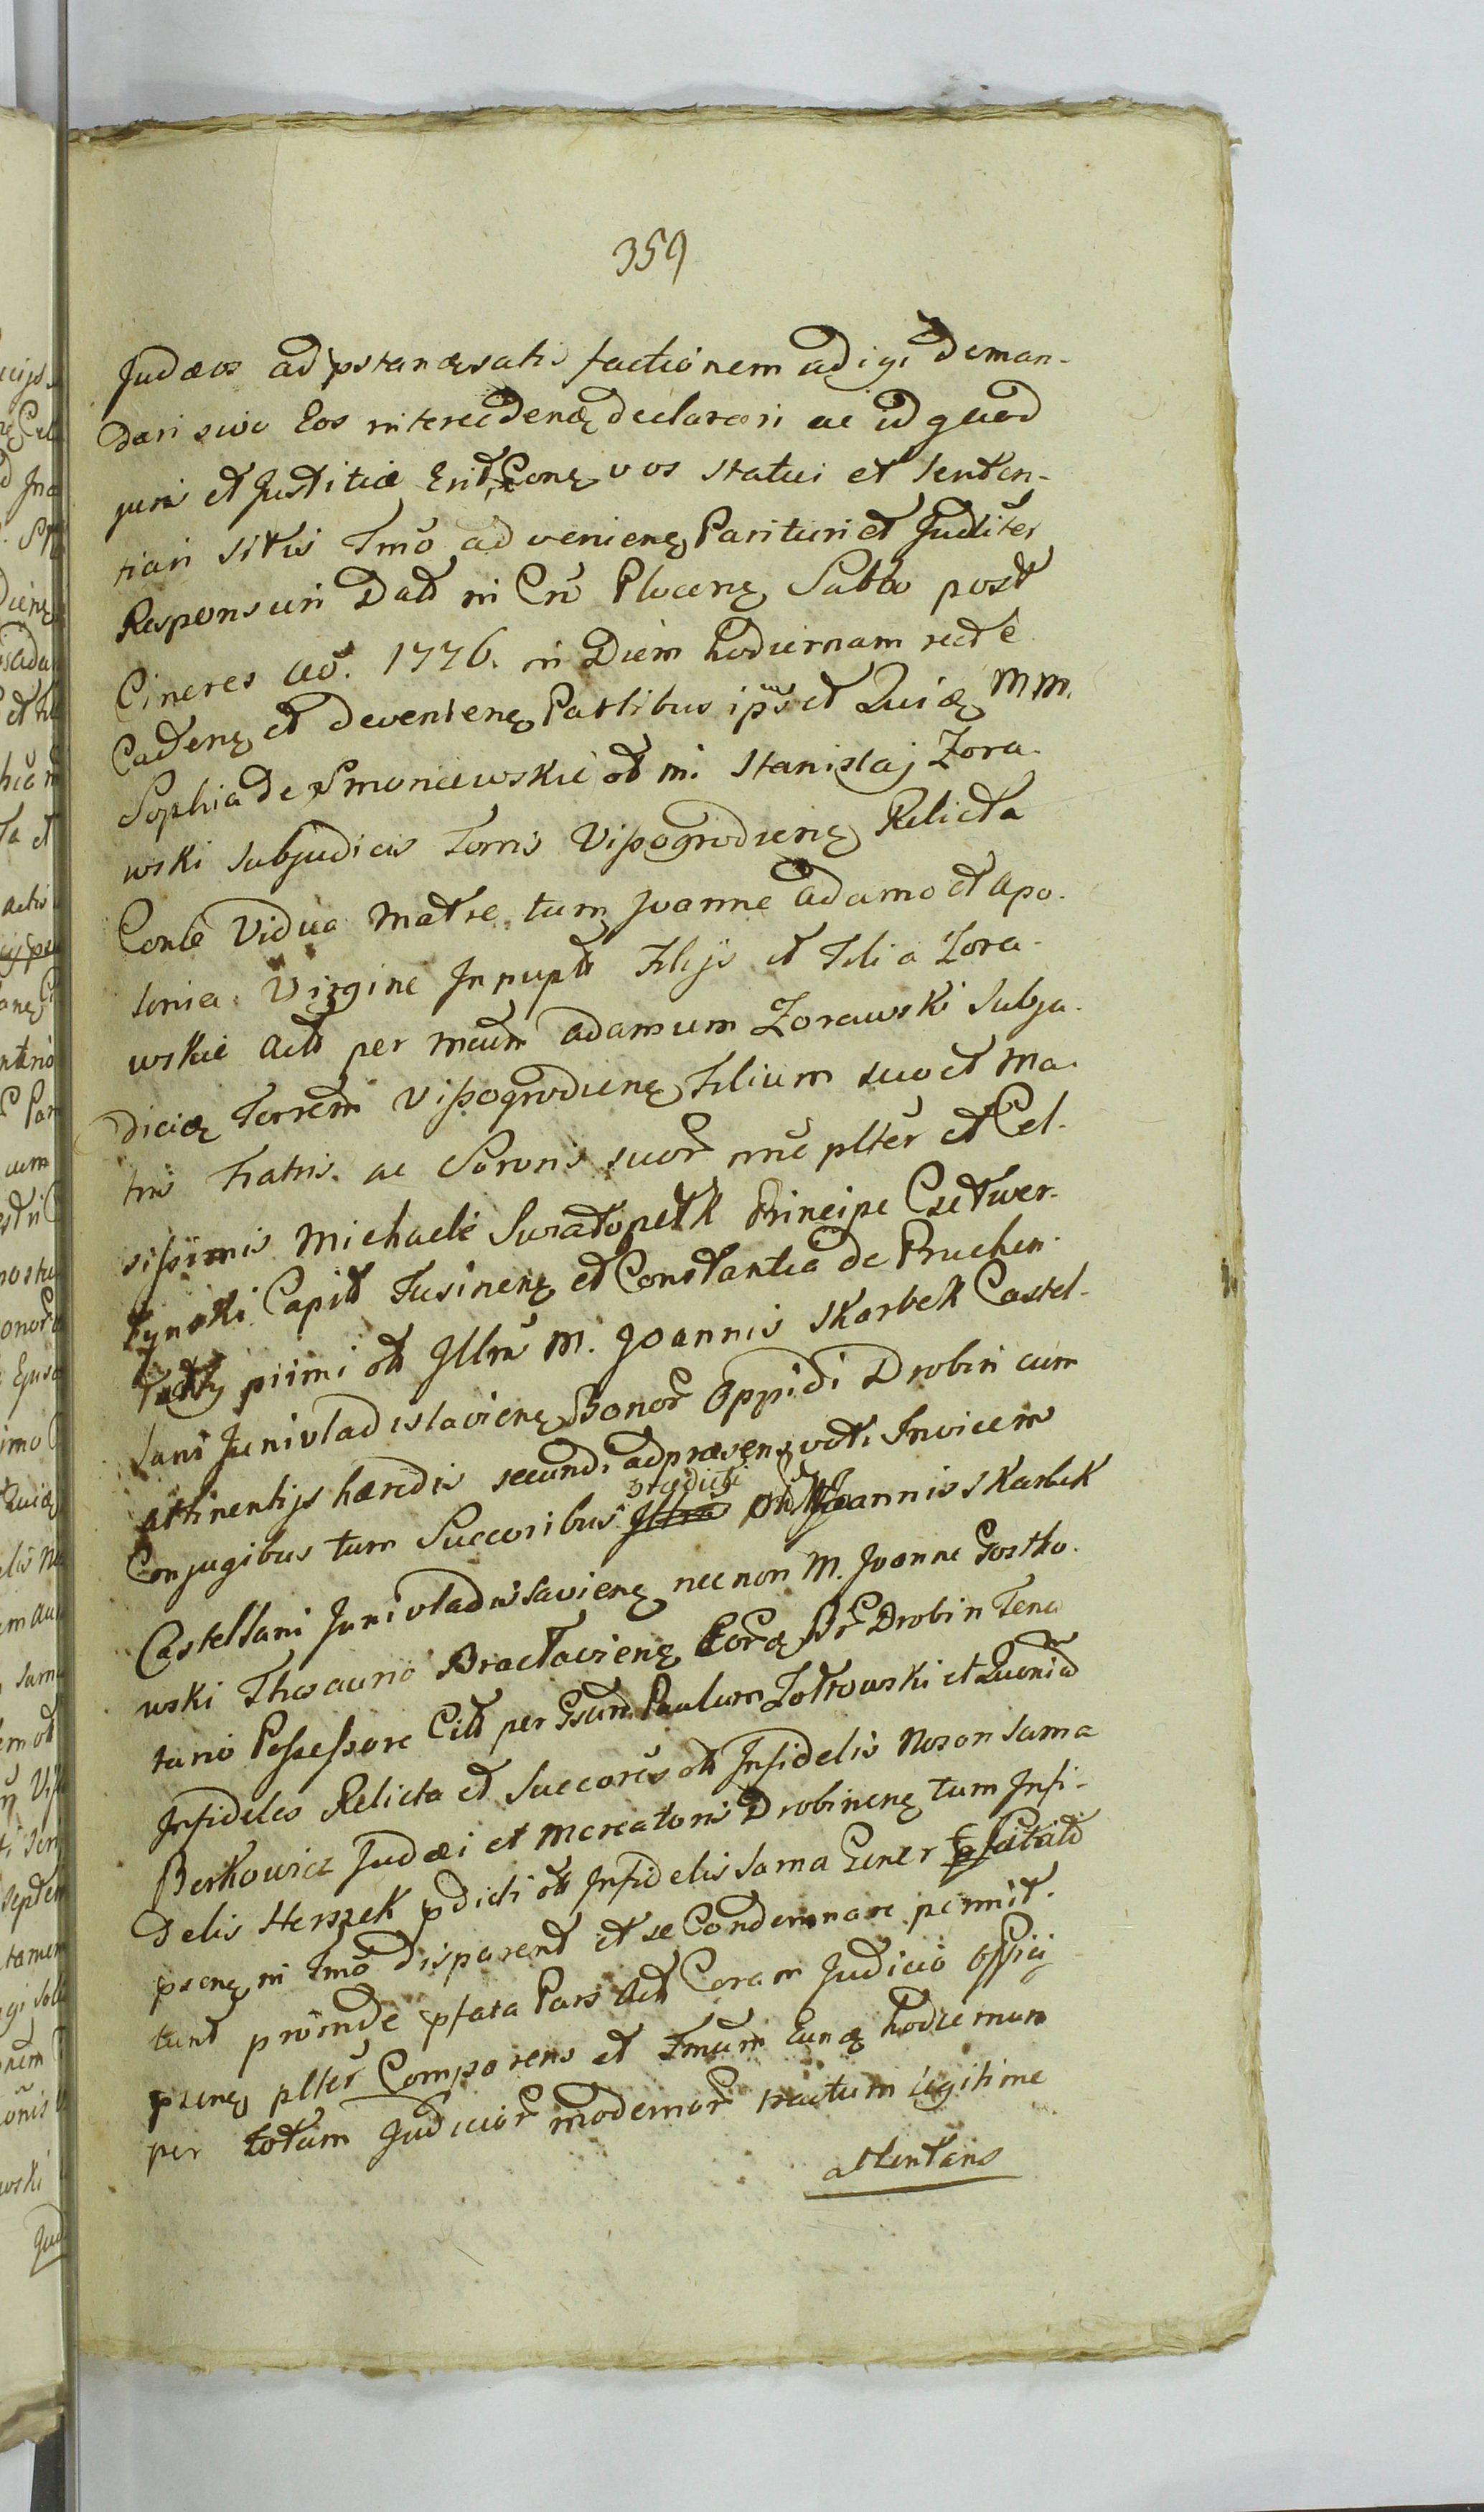 359
Judæos ad pstanḍ satis factionem adigi deman-
dari sive Eos intercedenḍ declarari ac id quod
juri et Justitiæ Erit Conę vos statui et senten-
tiari sitis Tmō ad venienę Parituri et Judliter
Responsuri Datt in Crō Plocenę Sabbo post
Cineres aō. 1776. in Diem hodiernam recte
Cadenę et devenienę Partibus ipīs et Quidę MM.
Sophia de Smoniewskie ott m. Stanislaj Zora-
wski Subjudicis Terris Vissogrodienę Relicta
Conle Vidua Matre, tum Joanne Adamo et Apo-
lonia Virgine Innupta Filijs et Filia Zora-
wskie Actt per mcum Adamum Zorawski Subju-
dicię Terrem Vissogrodienę Filium suo et Ma-
tris Fratris. ac Sororis suor nnē plter et Cel-
sissimis Michaele Swiatopełk Principe Czetwer-
tynski Capitt Tusinenę et Constantia de Bruchen-
piimi ott Jllris M. Joannis Skarbek Castel-
lani Junivladislavienę Bonor Oppidi Drobin cum
attinentijs hæredis secundi adpræsens voti Invicem
Conjugibus tum Succoribus prædicti ott Joannis Skarbek
Castellani Junivladislavienę nec non M. Joanne Gostko-
wski Thesaurio Bractavienę Eorḍ Br Drobin Tenu
tario Possessore Citt per Gsum Paulum Zotrowski et Quonitt
Infideles Relicta et Succores ott Infidelis Noson Sama
Berkowicz Judæi et Mercatoris Drobinenę tum Infi-
delis Herszek pdicti ott Infidelis Sama Gener citatt
psenę in Tmō disparent et se Condemnare permit-
tunt proinde pfata Pars Actt Coram Judicio Officij
psenę plter Comparens et Tmum Eunḍ hodiernum
per totum Judicior modernor tractum legitime
attentans